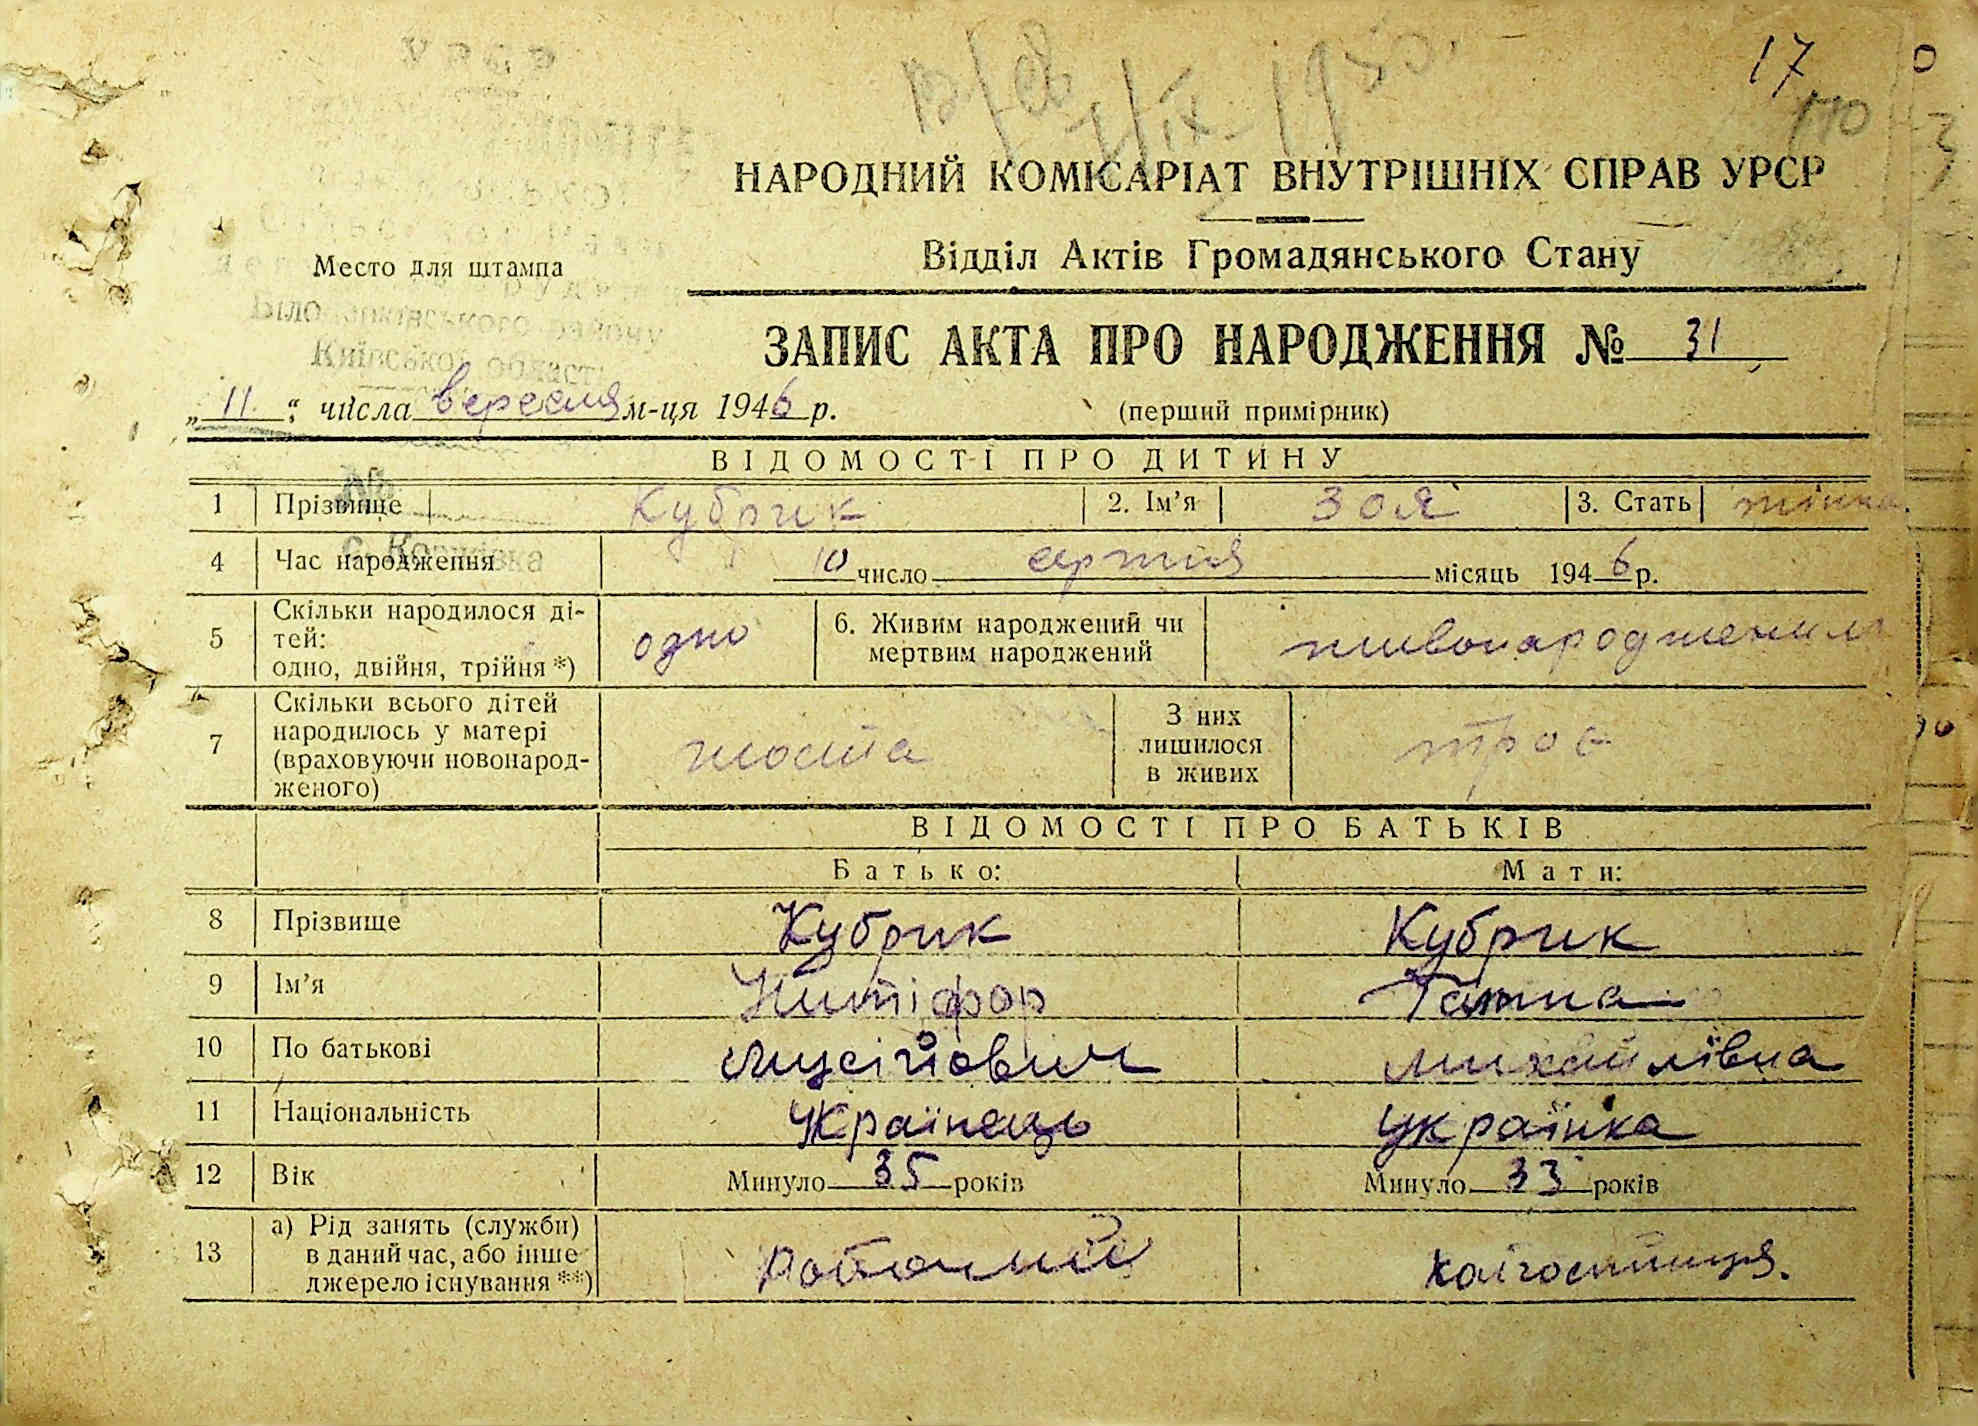 17
НАРОДНИЙ КОМІСАРІАТ ВНУТРІШНІХ СПРАВ УРСР
Відділ Актів Громадянського Стану
Место для штампа
Білоцерківського району
Київської області
ЗАПИС АКТА ПРО НАРОДЖЕННЯ № 31
„ 11 “ числа вересня м-ця 1946 р.
(перший примірник)
ВІДОМОСТІ ПРО ДИТИНУ
1 Прізвище Кубрик 2. Ім’я Зоя 3. Стать жінка.
4 Час народження 10 число серпня місяць 1946 р.
5 Скільки народилося ді-
тей:
одно, двійня, трійня *) одно 6. Живим народжений чи
мертвим народжений живонароджений
7 Скільки всього дітей
народилось у матері
(враховуючи новонарод-
женого) шоста З них
лишилося
в живих троє
ВІДОМОСТІ ПРО БАТЬКІВ
Батько: Мати:
8 Прізвище Кубрик Кубрик
9 Ім’я Никіфор Гапка
10 По батькові Мусійович Михайлівна
11 Національність Українець українка
12 Вік Минуло 35 років Минуло 33 років
13 а) Рід занять (служби)
в даний час, або інше
джерело існування **) робочий колгоспниця.